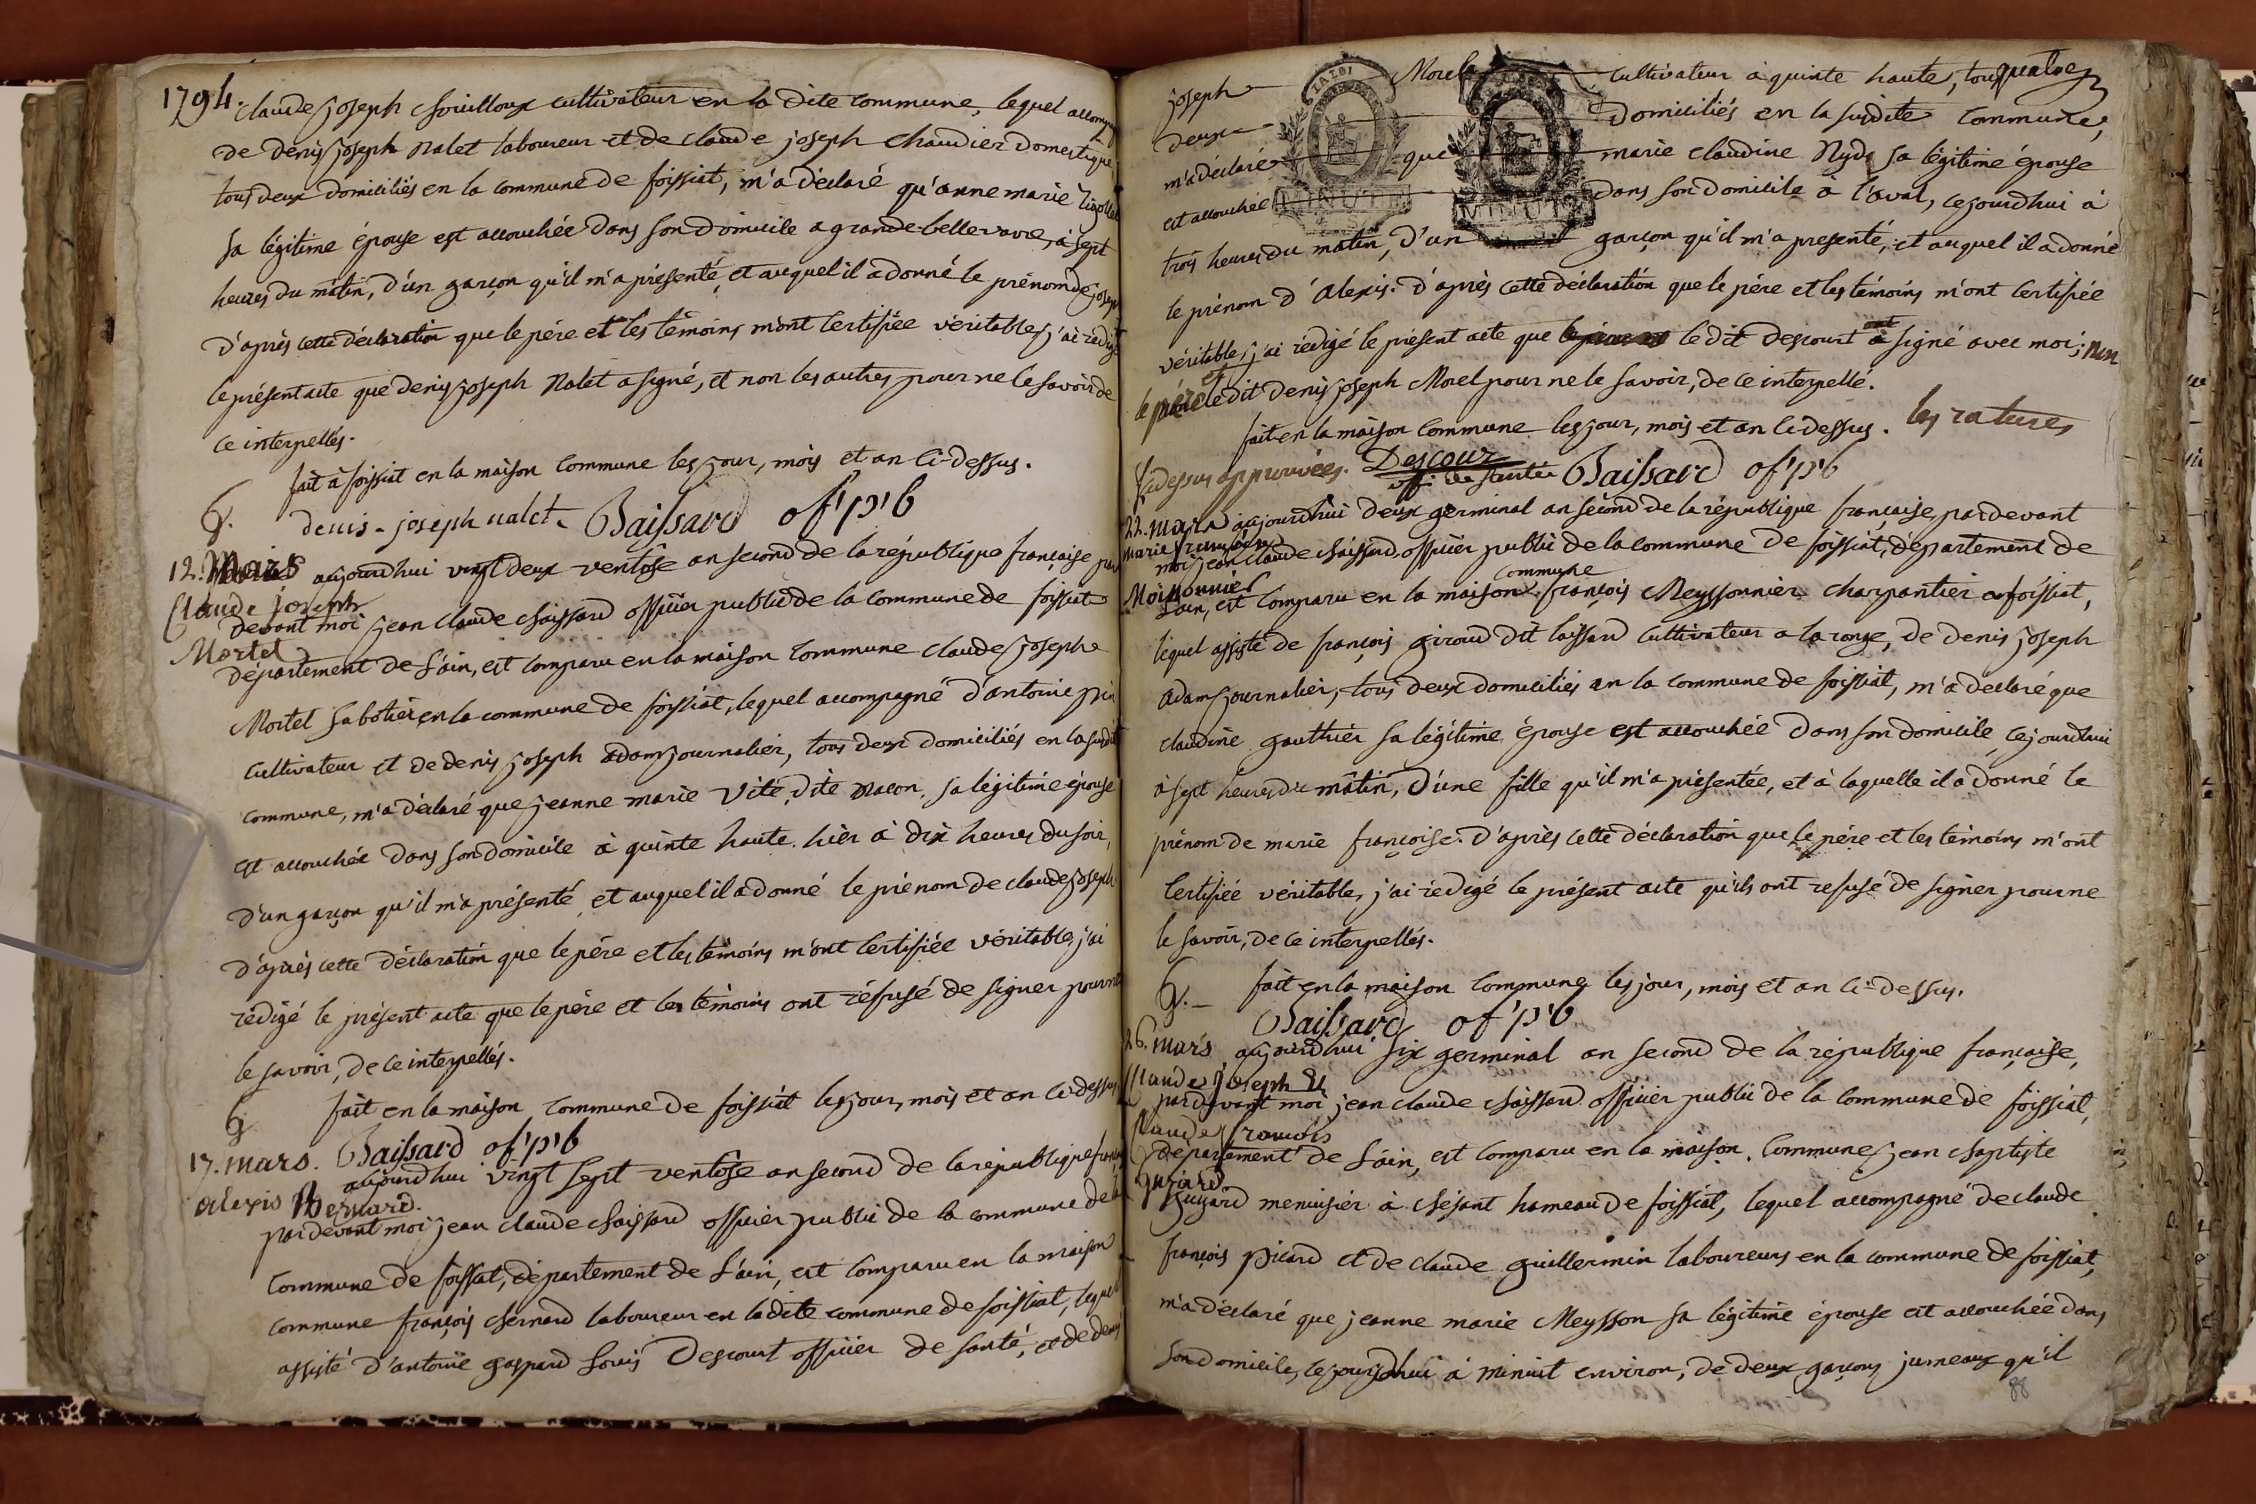 1794.
claude joseph Souilloux cultivateur en la dite commune, lequel accompag
de denis joseph nalet laboureur et de claude joseph Chaudier domestique,
tous deux domiciliés en la commune de foissiat, m'a déclaré qu'anne marie
sa légitime épouse est accouchée dans son domicile a grande bellevavre, à sept
heures du matin, d'un garçon qu'il m'a présenté, et auquel il a donné le prénom de joseph
d'après cette déclaration que le père et les témoins m'ont certifiée véritable, j'ai rédigé
le présent acte que denis joseph Nalet a signé, et non les autres pour ne le savoir de
ce interpellés.
fait à foissiat en la maison commune les jour, mois et an ci-dessus.
G. denis-joseph nalet Baissard of. p. b
12. Mars aujourdhui vingt deux ventose an second de la république française par
Claude joseph
devant moi jean claude Baissard officier public de la commune de foissiat
Mortel
département de l'ain, est comparu en la maison commune claude joseph
Mortel sabotier en la commune de foissiat, lequel accompagné d'antoine pin
cultivateur et de denis joseph adam journalier, tous deux domiciliés en la susdite
commune, m'a déclaré que jeanne marie Vité, dite Macon, sa légitime épouse
est accouchée dans son domicile à quinte haute hier à dix heures du soir,
d'un garçon qu'il m'a présenté et auquel il a donné le prénom de claude joseph
d'après cette déclaration que le père et les témoins m'ont certifiée véritable, j'ai
rédigé le présent acte que le père et les témoins ont réfusé de signer pour ne
le savoir, de ce interpellés.
G fait en la maison commune de foissiat les jour, mois et an ci-dessus
Baissard of. p. b
17. mars. aujourdhui vingt sept ventose an second de la république fran
alexis Bernard.
par devant moi jean claude Baissard officier public de la commune de la
commune de foissiat, département de l'ain, est comparu en la maison
commune françois Bernard laboureur en la dite commune de foissiat, lequel
assisté d'antoine gaspard Louis Descourt officier de santé, et de denis
joseph Morel cultivateur à quinte haute, tous quatre
deux domiciliés en la susdite commune,
m'a déclaré que marie claudine Nyds sa légitime épouse
est accouchée dans son domicile à l'aval, cejourdhui à
trois heures du matin, d'un garçon qu'il m'a presenté, et auquel il a donné
le prénom d'Alexis. d'après cette déclaration que le père et les témoins m'ont certifiée
véritable, j'ai rédigé le présent acte que le dit descourt a signé avec moi; non
le père et le dit denis joseph Morel pour ne le savoir, de ce interpellé.
fait en la maison commune les jour, mois et an ci-dessus. les ratures
ci dessus approuvées. Descour off. de santé Baissard of. p. b
MINUTE
MINUTE
22. mars aujourdhui deux germinal an second de la république française, par devant
marie françoise
moi jean claude Baissard, officier public de la commune de foissiat, département de
Moissonnier
l'ain, est comparu en la maison commune françois Meyssonnier charpentier a foissiat,
lequel assisté de françois giroud dit laissard cultivateur a la ronge, de denis joseph
adam journalier, tous deux domiciliés en la commune de foissiat, m'a déclaré que
claudine gauthier sa légitime épouse est accouchée dans son domicile cejourdhui
à sept heures du matin, d'une fille qu'il m'a présentée, et à laquelle il a donné le
prénom de marie françoise. d'après cette déclaration que le père et les témoins m'ont
certifiée véritable, j'ai rédigé le présent acte qu'ils ont refusé de signer pour ne
le savoir, de ce interpellés.
G. fait en la maison commune les jour, mois et an ci-dessus.
Baissard of. p. b
26. mars aujourdhui six germinal an second de la république française,
Claude joseph Et
par devant moi jean claude Baissard officier public de la commune de foissiat,
Claude françois
département de l'ain, est comparu en la maison commune jean Baptiste
Guyard
Guyard menuisier à Césant hameau de foissiat, lequel accompagné de claude
françois picard et de claude guillermin laboureurs en la commune de foissiat,
m'a déclaré que jeanne marie Meysson sa légitime épouse est accouchée dans
son domicile, cejourdhui à minuit environ, de deux garçons jumeaux qu'il
88